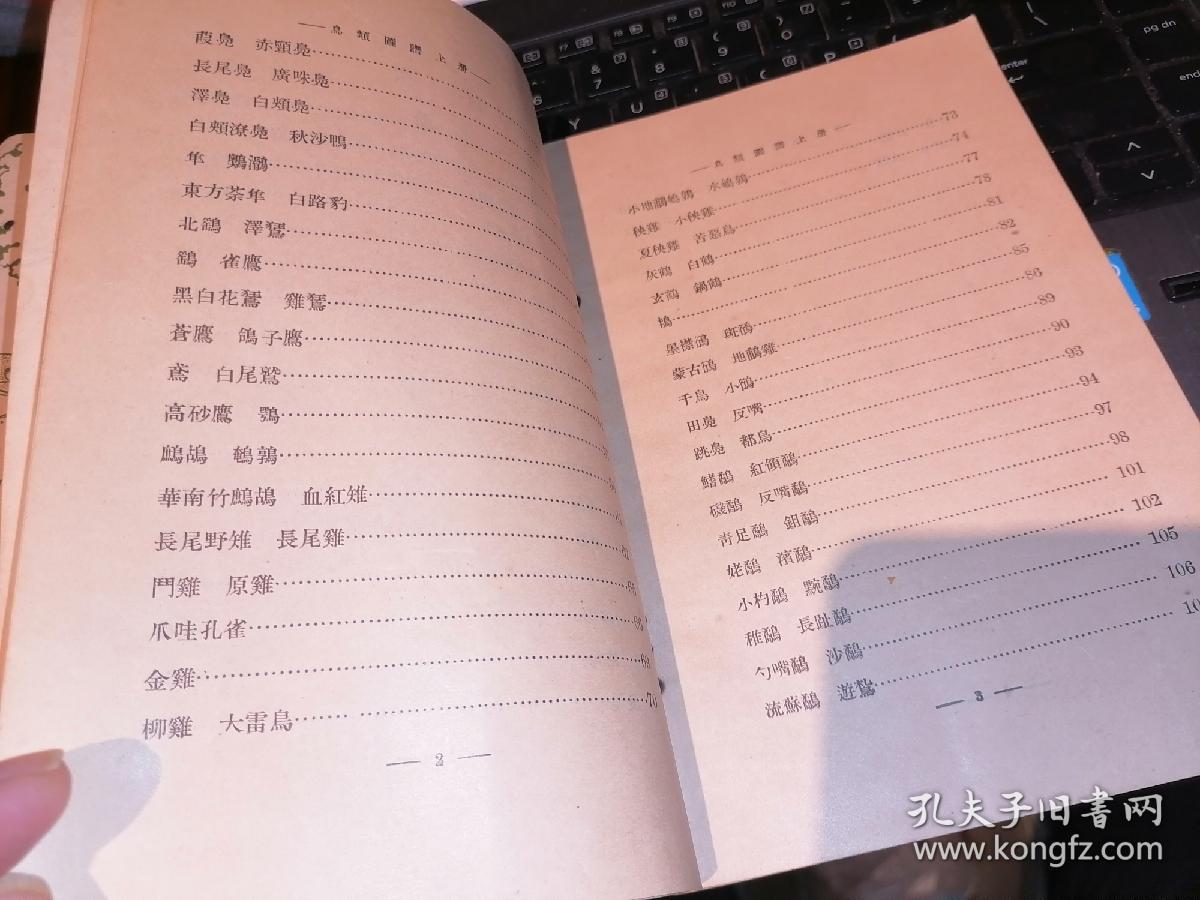 鳥類圖譜上册
葭鳧 赤頸鳧
長尾鳧 廣咮鳧
澤鳧 白頰鳧
白頰潦鳧 秋沙鴨
隼
東方茶隼 白路豹
北鷂 澤鵟
鷂 雀鷹
黑白花鵟 雞鵟
蒼鷹 鴿子鷹
鳶 白尾鷲
高砂鷹 鶚
鷓鴣 鵪鶉
華南竹鷓鴣 血紅雉
長尾野雉 長尾雞
鬥雞 原雞
爪哇孔雀
金雞 69
柳雞 大雷鳥 70
— 2 —
鳥類圖譜上册
73
74
小地鷸鵪鶉 水鵪鶉 77
秧雞 小秧雞 78
夏秧雞 苦惡鳥 81
灰鶴 白鶴 82
玄鶴 鍋鶴 85
鴇 86
墨襟鴴 斑鴴 89
蒙古鴴 地鷸雞 90
千鳥 小鴴 93
田鳧 反嘴 94
跳鳧 都鳥 97
鰭鷸 紅領鷸 98
磯鷸 反嘴鷸 101
青足鷸 鉏鷸 102
姥鷸 濱鷸 105
小杓鷸 106
稚鷸 長趾鷸
勺嘴鷸 沙鷸
流蘇鷸 遊鷲
— 3 —
&
7
8
6
Y
U
pg dn
enter
end
孔夫子旧书网
www.kongfz.com